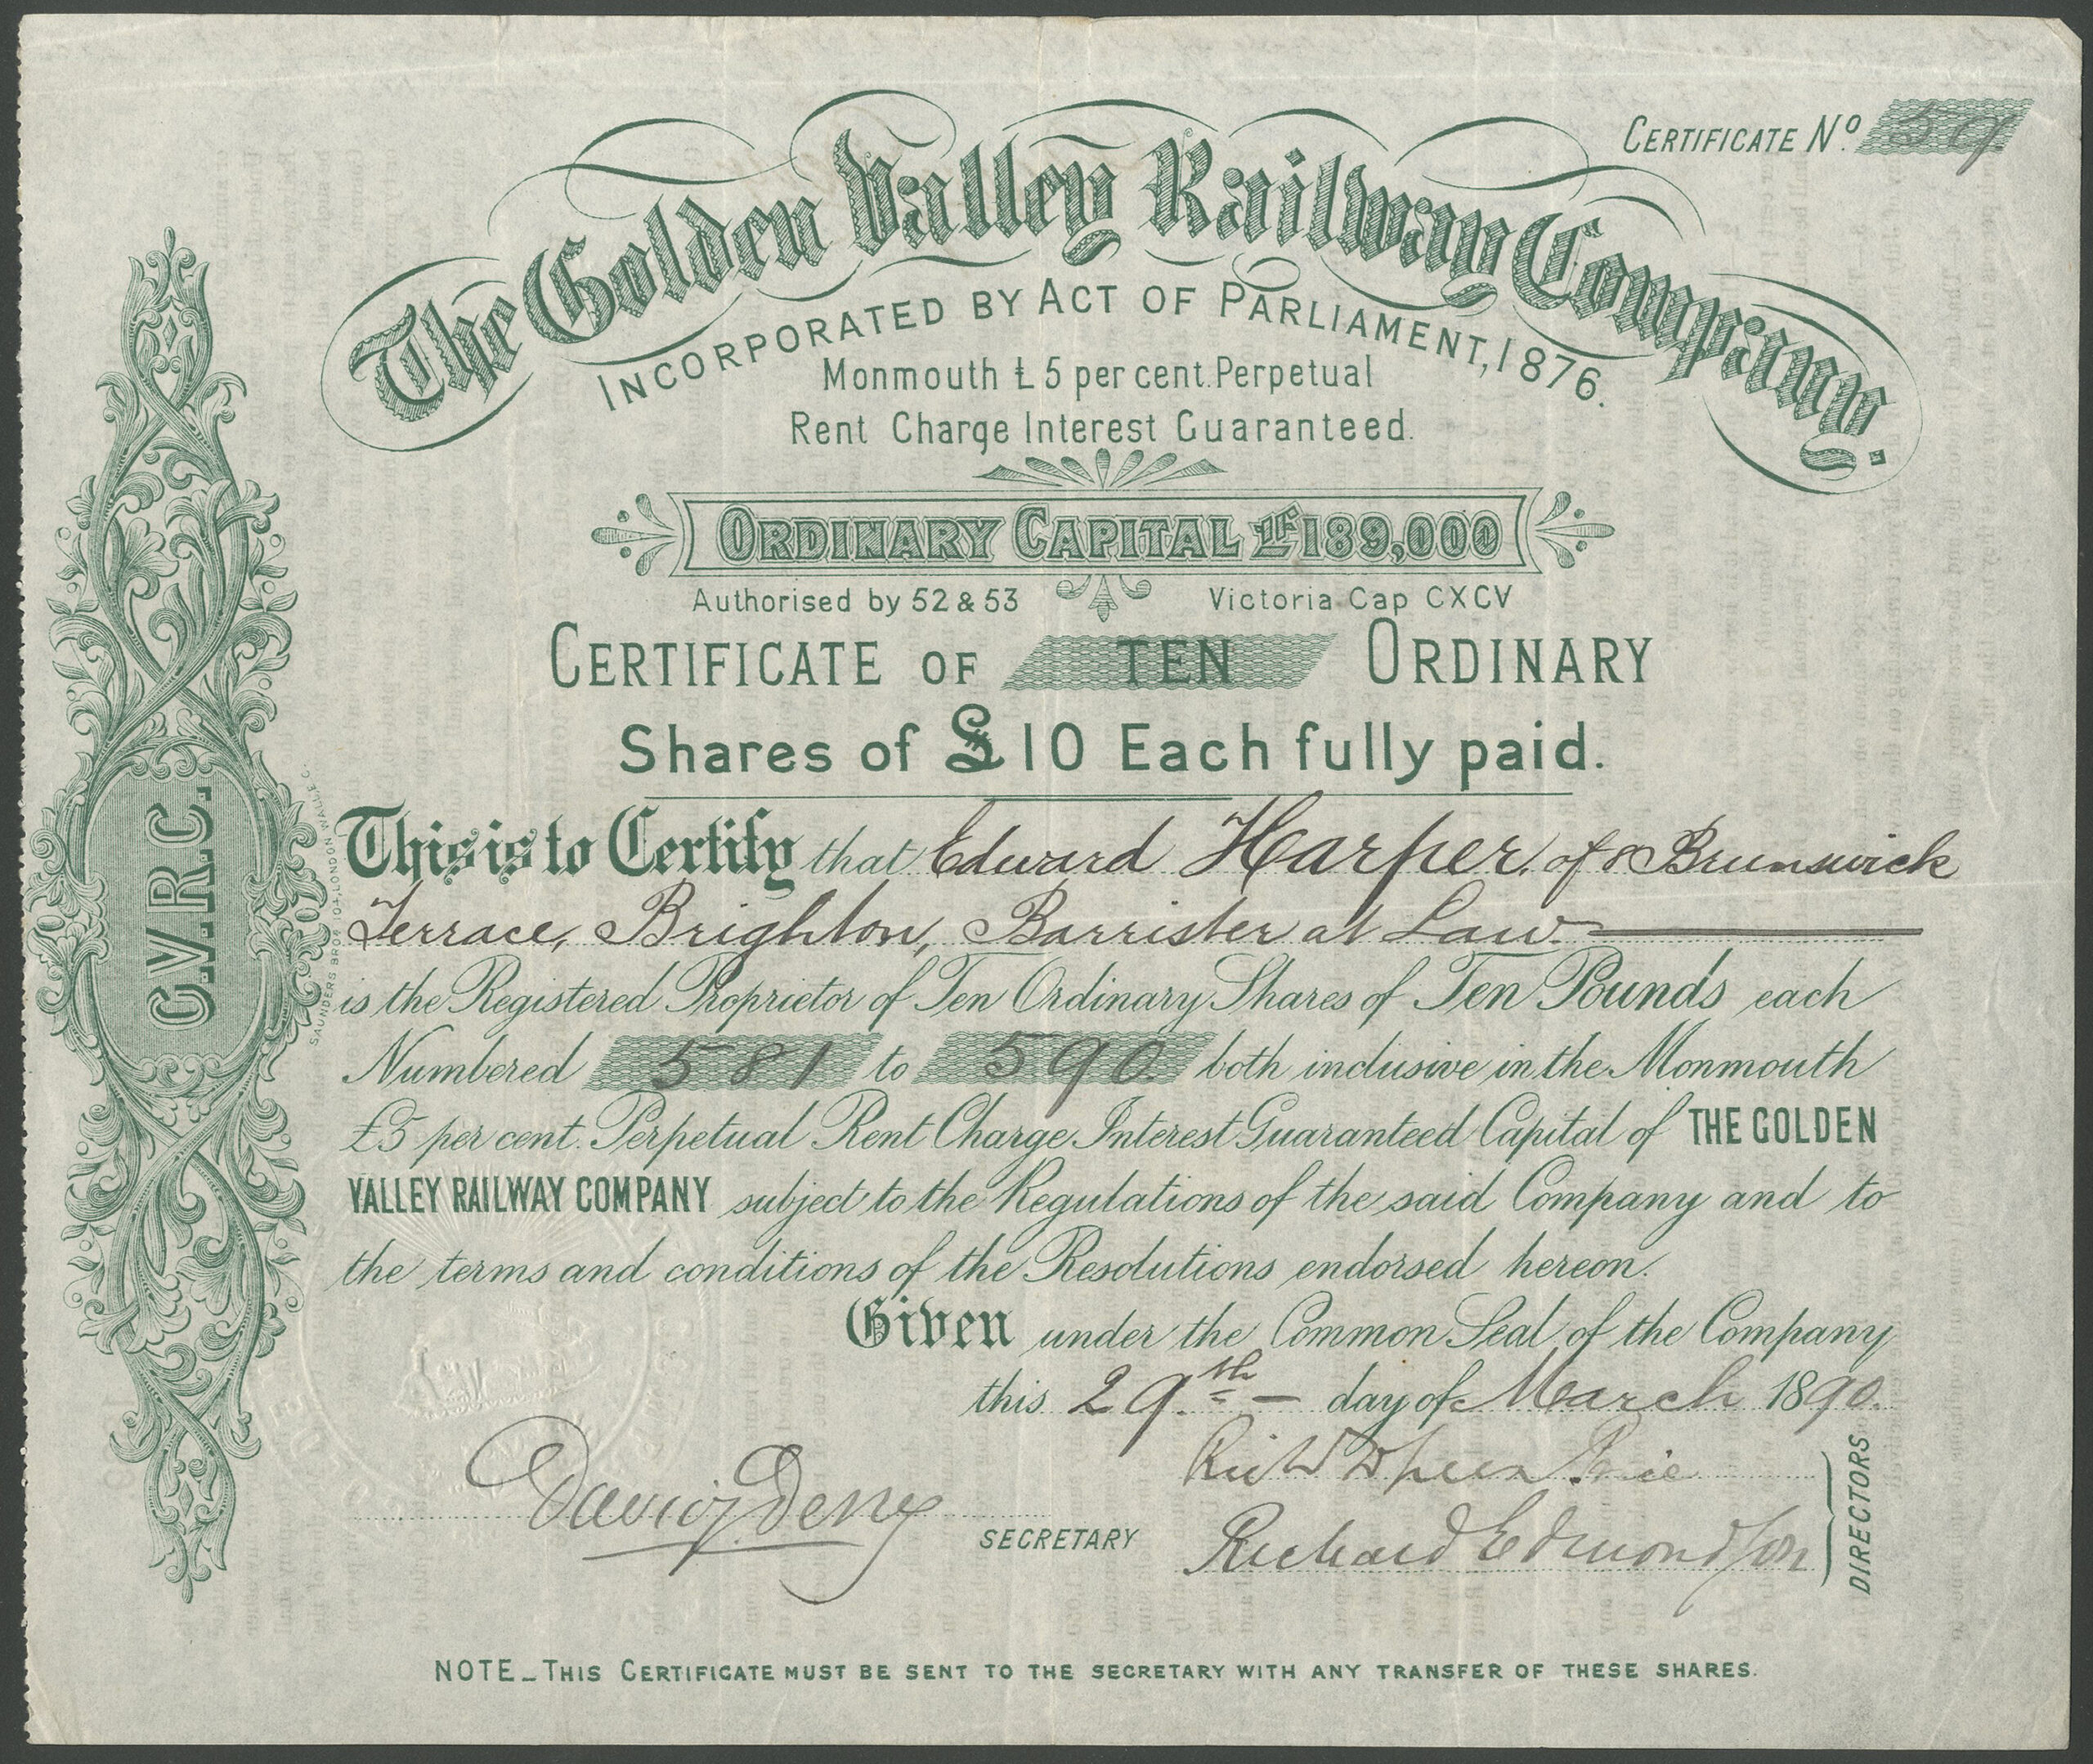 CERTIFICATE No. 59
The Golden Valley Railway Company.
INCORPORATED BY ACT OF PARLIAMENT, 1876.
Monmouth £5 per cent. Perpetual
Rent Charge Interest Guaranteed.
ORDINARY CAPITAL £189,000
Authorised by 52 & 53 Victoria Cap CXCV
CERTIFICATE OF TEN ORDINARY
Shares of £10 Each fully paid.
This is to Certify that Edward Harper, of 8 Brunswick
Terrace, Brighton, Barrister at Law.
is the Registered Proprietor of Ten Ordinary Shares of Ten Pounds each
Numbered 581 to 590 both inclusive in the Monmouth
£5 per cent. Perpetual Rent Charge Interest Guaranteed Capital of THE GOLDEN
VALLEY RAILWAY COMPANY subject to the Regulations of the said Company and to
the terms and conditions of the Resolutions endorsed hereon.
Given under the Common Seal of the Company
this 29th day of March 1890.
Richard Edmondson
SECRETARY
DIRECTORS
NOTE_THIS CERTIFICATE MUST BE SENT TO THE SECRETARY WITH ANY TRANSFER OF THESE SHARES.
G.V.R.C.
SAUNDERS BROS 104, LONDON WALL E.C.